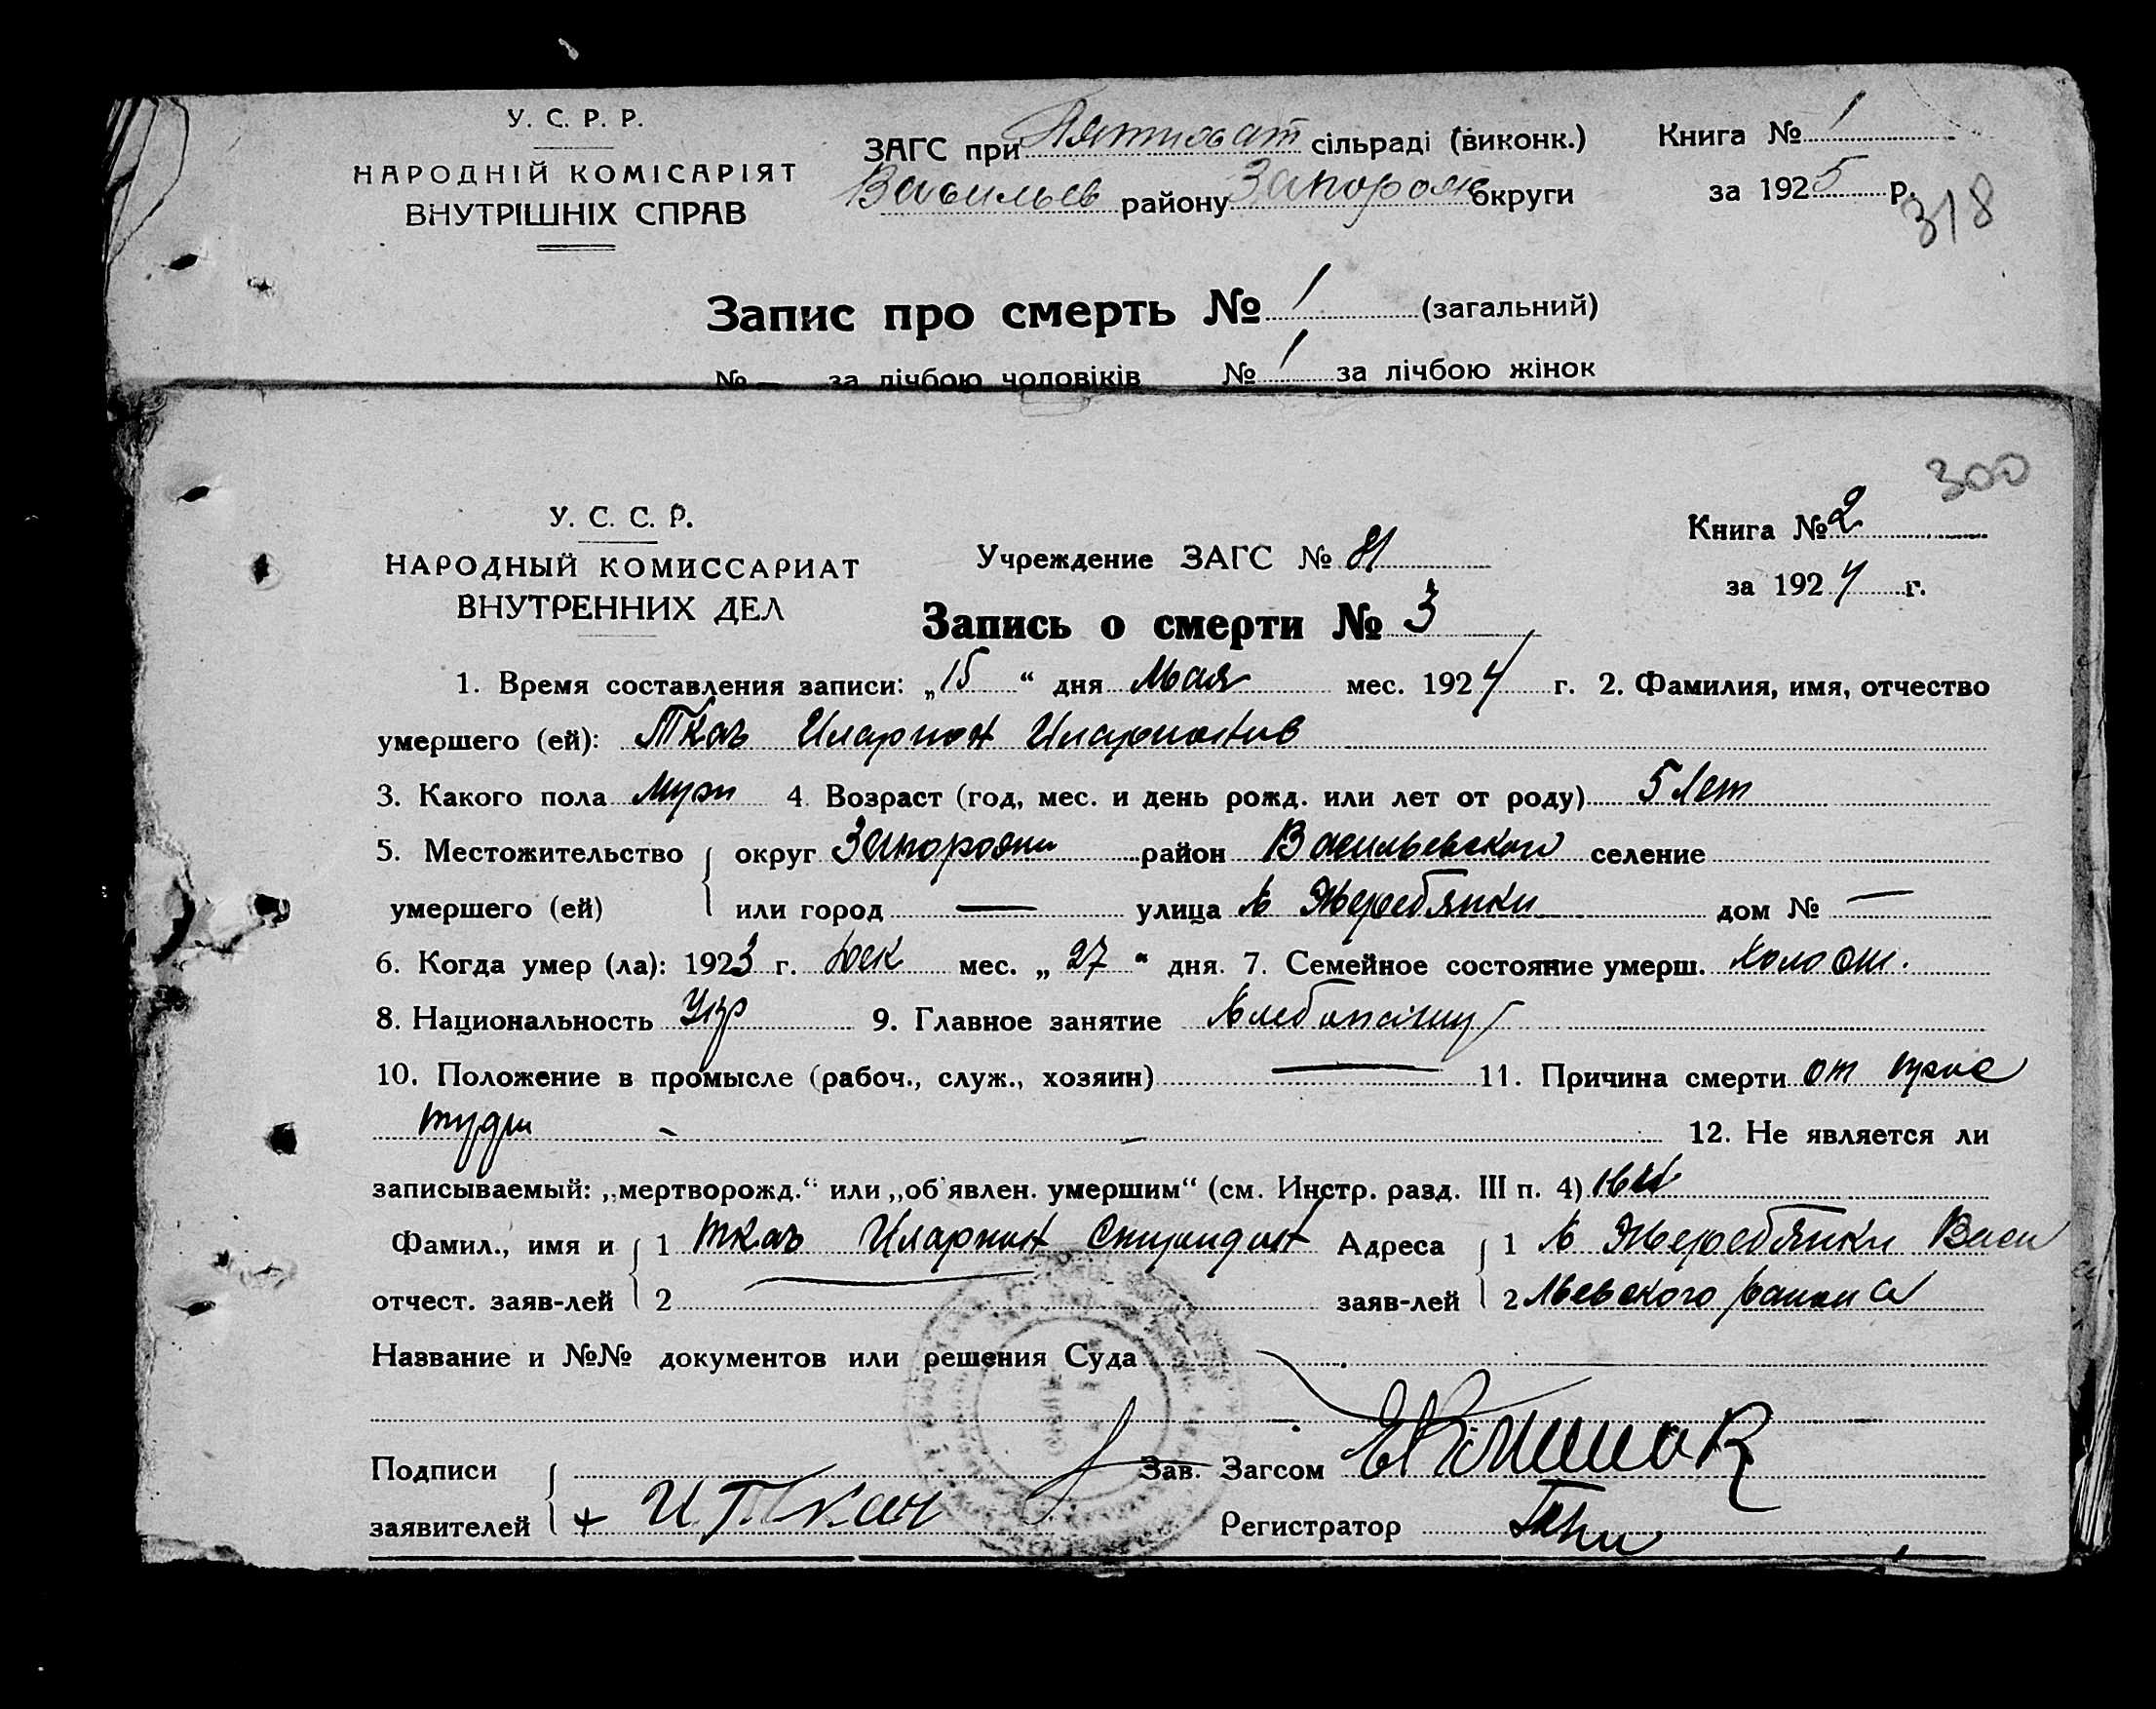 У. С. Р. Р.
НАРОДНІЙ КОМІСАРІЯТ
ВНУТРІШНІХ СПРАВ
ЗАГС при Пятихат сільраді (виконк.)
Васильев району Запорож округи
Книга № 1
за 1925 р.
318
Запис про смерть № 1 (загальний)
№ — за лічбою чоловіків № 1 за лічбою жінок
300
У. С. С. Р.
НАРОДНЫЙ КОМИССАРИАТ
ВНУТРЕННИХ ДЕЛ
Учреждение ЗАГС № 81
Книга № 2
за 1924 г.
Запись о смерти № 3
1. Время составления записи: „15“ дня Мая мес. 1924 г. 2. Фамилия, имя, отчество
умершего (ей): Ткач Иларион Иларионов
3. Какого пола муж 4. Возраст (год, мес. и день рожд. или лет от роду) 5 лет
5. Местожительство округ Запорожи район Васильевский селение
умершего (ей) или город — улица с Жеребянки дом № —
6. Когда умер (ла): 1923 г. Дек мес. „27“ дня. 7. Семейное состояние умерш. холост.
8. Национальность Укр 9. Главное занятие
10. Положение в промысле (рабоч., служ., хозяин) — 11. Причина смерти от
12. Не является ли
записываемый: „мертворожд.“ или „об'явлен. умершим“ (см. Инстр. разд. III п. 4)
Фамил., имя и 1 Ткач Иларион Спиридон Адреса 1 с Жеребянки Васи
отчест. заяв-лей 2 — заяв-лей 2 льевского района
Название и №№ документов или решения Суда
Подписи Зав. Загсом
заявителей + И Ткач Регистратор